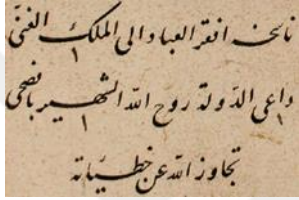 ناسخه افقر العباد الى الملك الغنى
داعى الدولة روح الله الشهير بافصحى
تجاوز الله عن خطيئاته